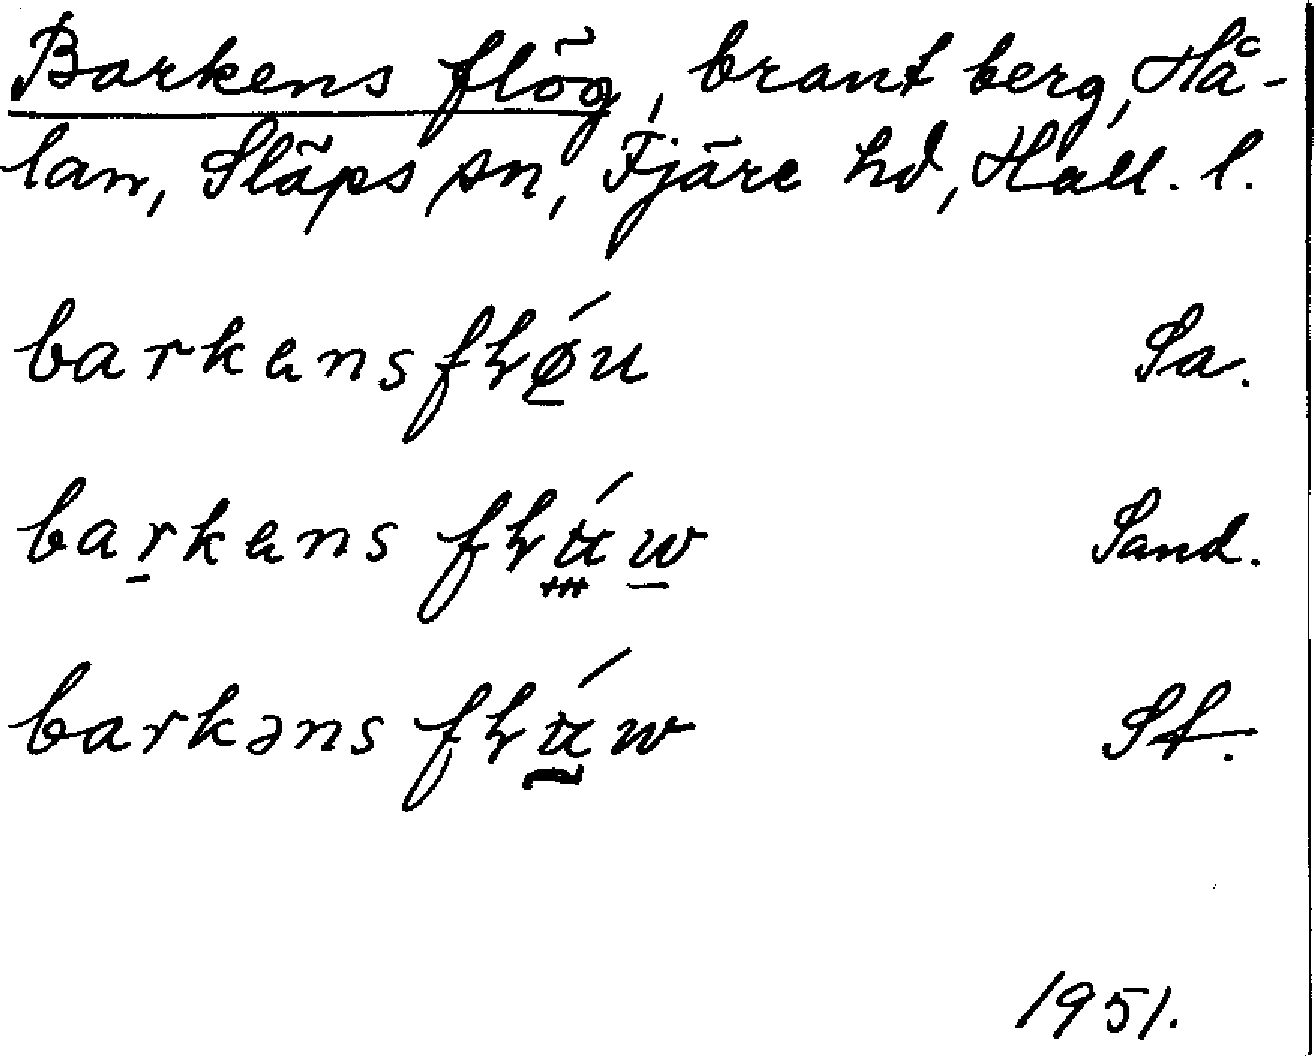 Barkens flög, brant berg, Hå-
lan, Släps sn, Fjäre hd, Hall. l.
barkens Sa.
barkens Sand.
barkəns St.
1951.